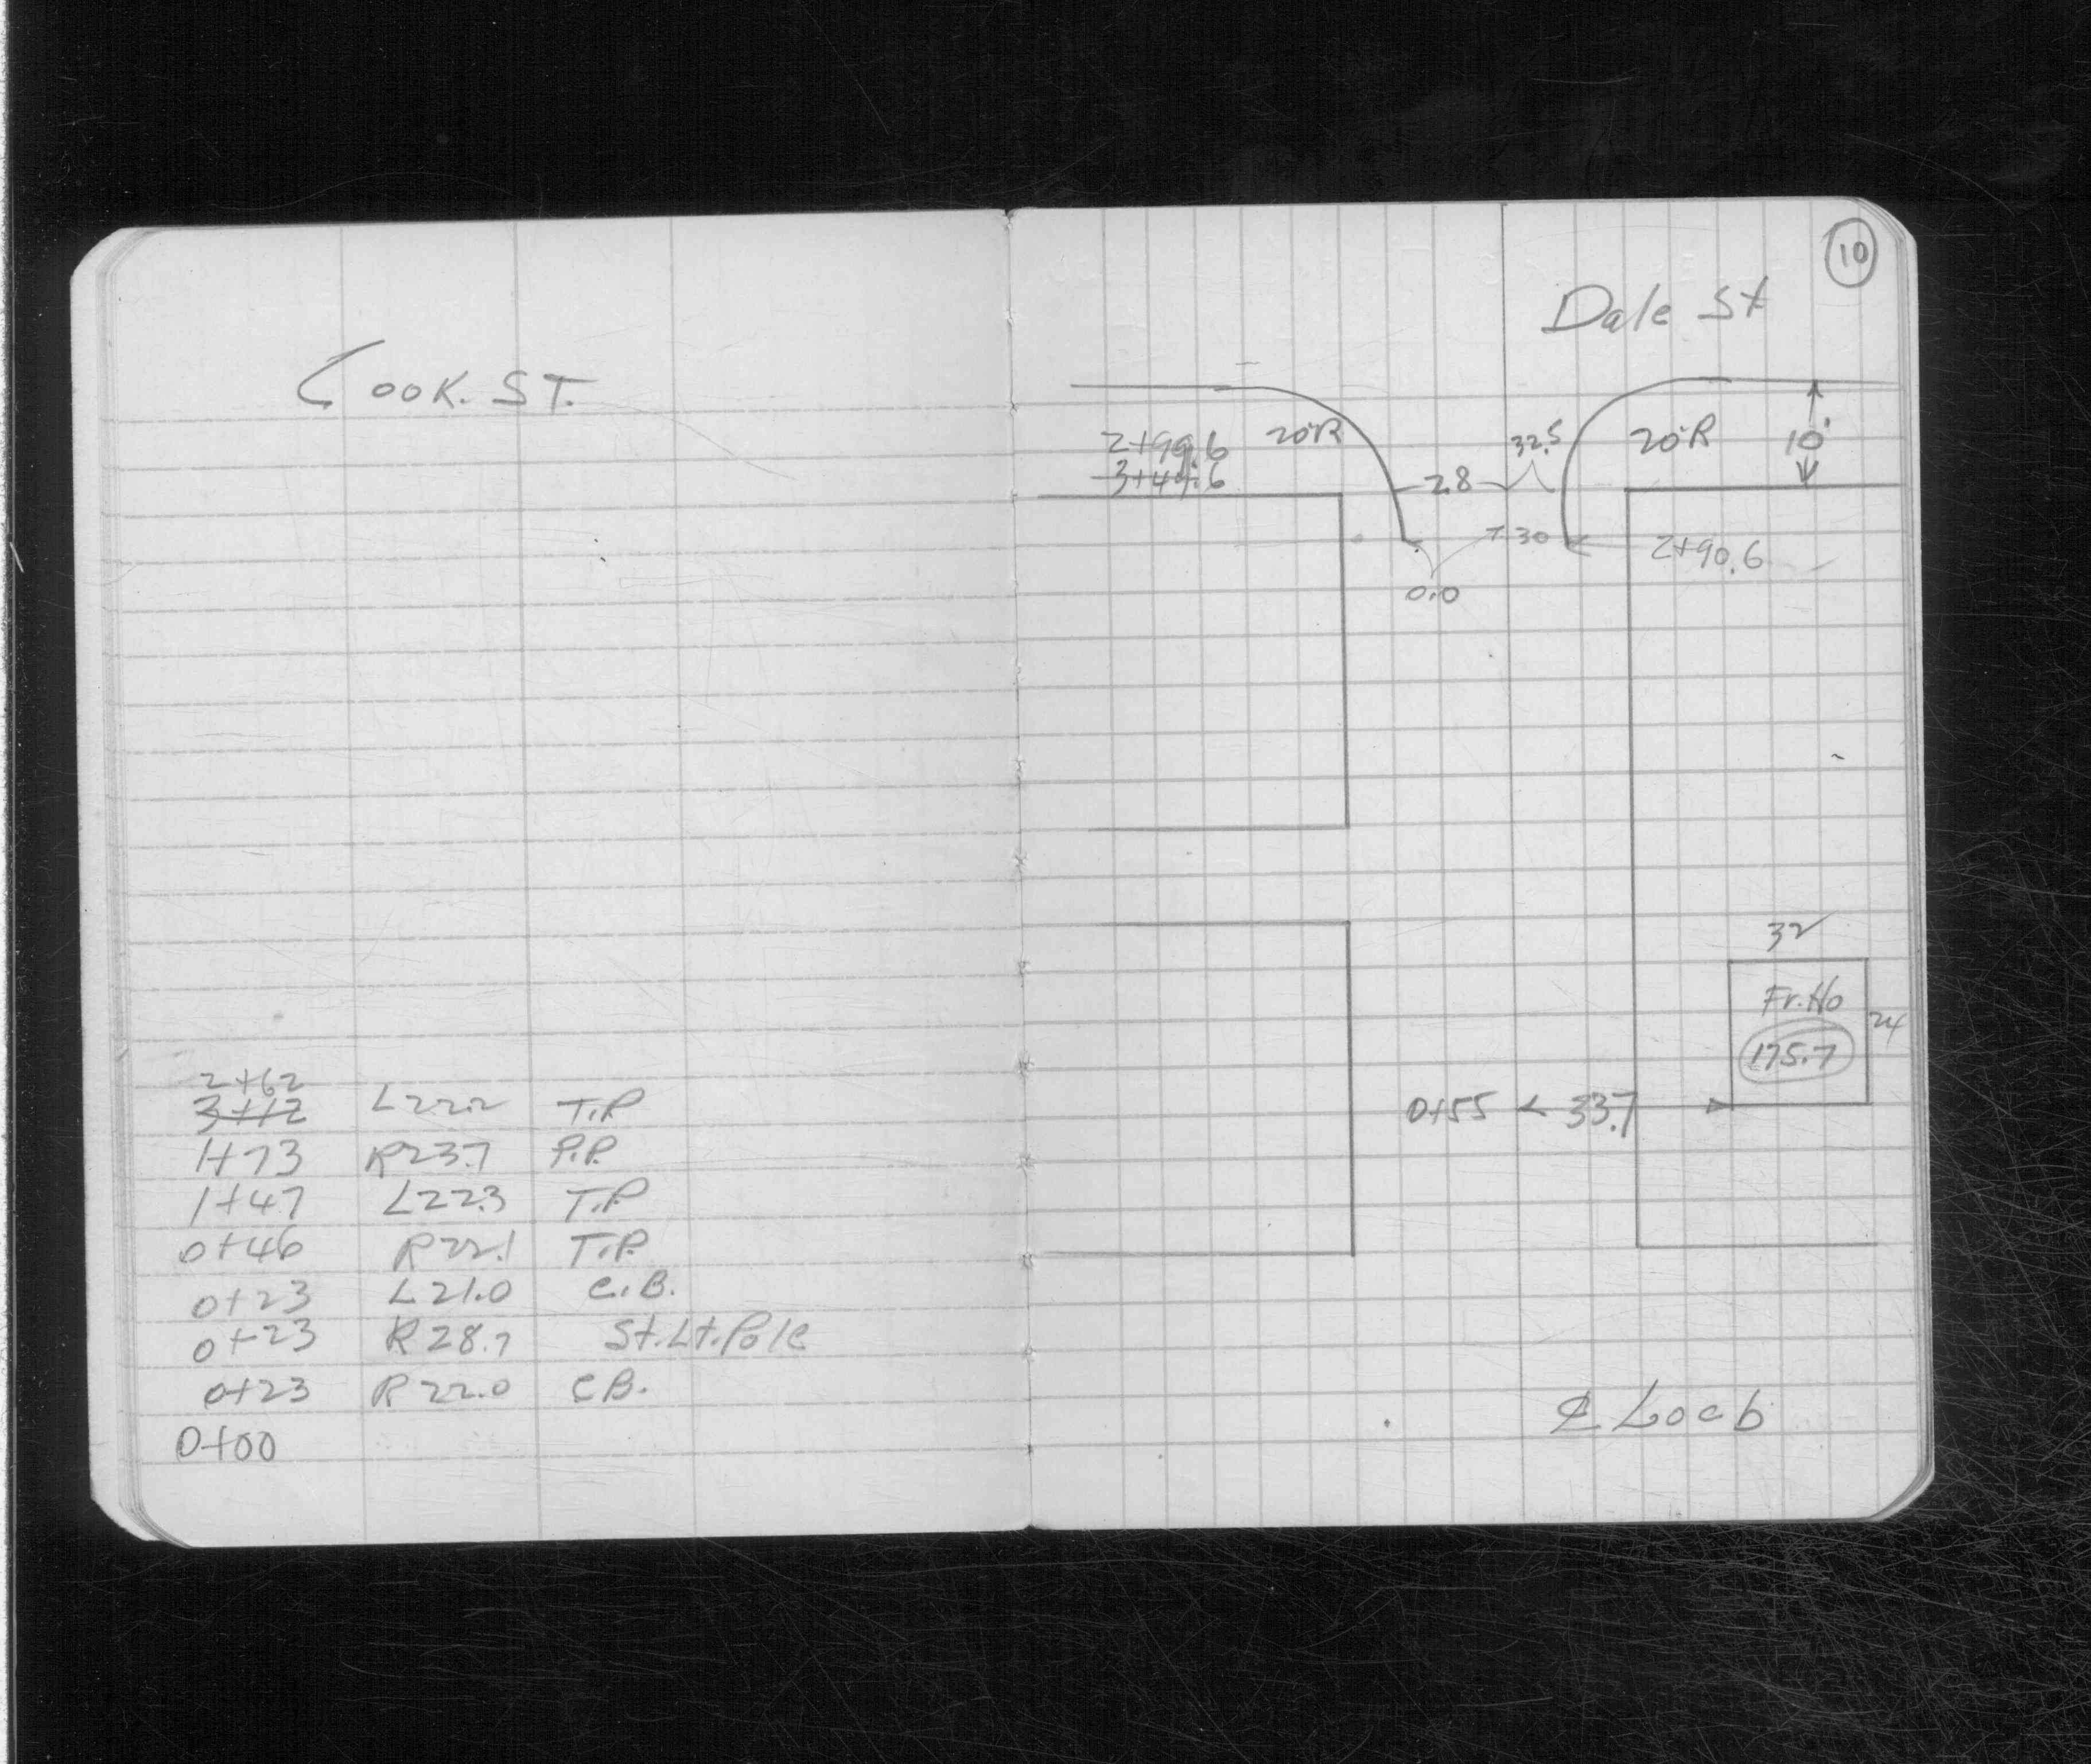 COOK. ST.
2+62
3+12 L22.2 T.P
1+73 R23.7 P.P.
1+47 L22.3 T.P
0+46 R22.1 T.P.
0+23 L21.0 C.B.
0+23 R28.7 St.Lt.Pole
0+23 R22.0 C B.
0+00
10
Dale St
2+99.6 20'R 32.5 20'R 10'
3+49.6 28
30 2+90.6
0.0
32
Fr.Ho
24
175.7
0+55 33.7
℄ Loeb